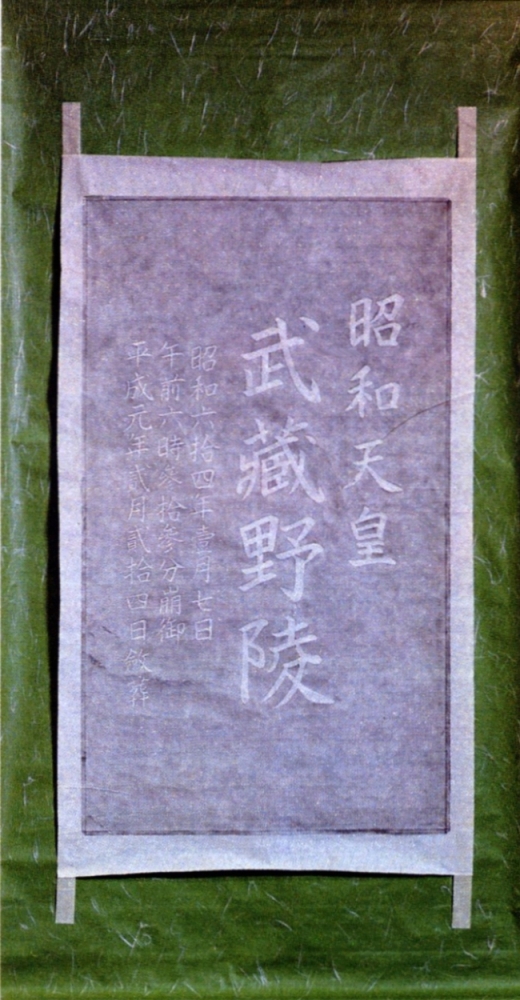 昭和天皇
武藏野陵
昭和六拾四年壹月七日
午前六時參拾參分崩御
平成元年貳月貳拾四日斂葬